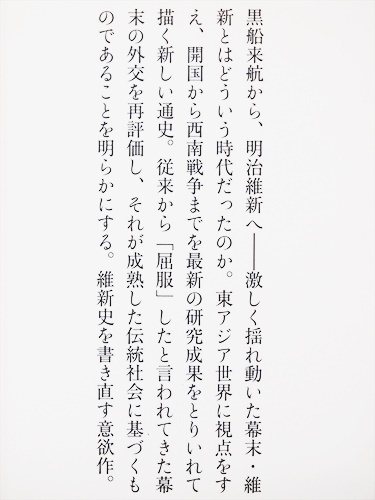 黒船来航から、明治維新へ――激しく揺れ動いた幕末・維
新とはどういう時代だったのか。東アジア世界に視点をす
え、開国から西南戦争までを最新の研究成果をとりいれて
描く新しい通史。従来から「屈服」したと言われてきた幕
末の外交を再評価し、それが成熟した伝統社会に基づくも
のであることを明らかにする。維新史を書き直す意欲作。